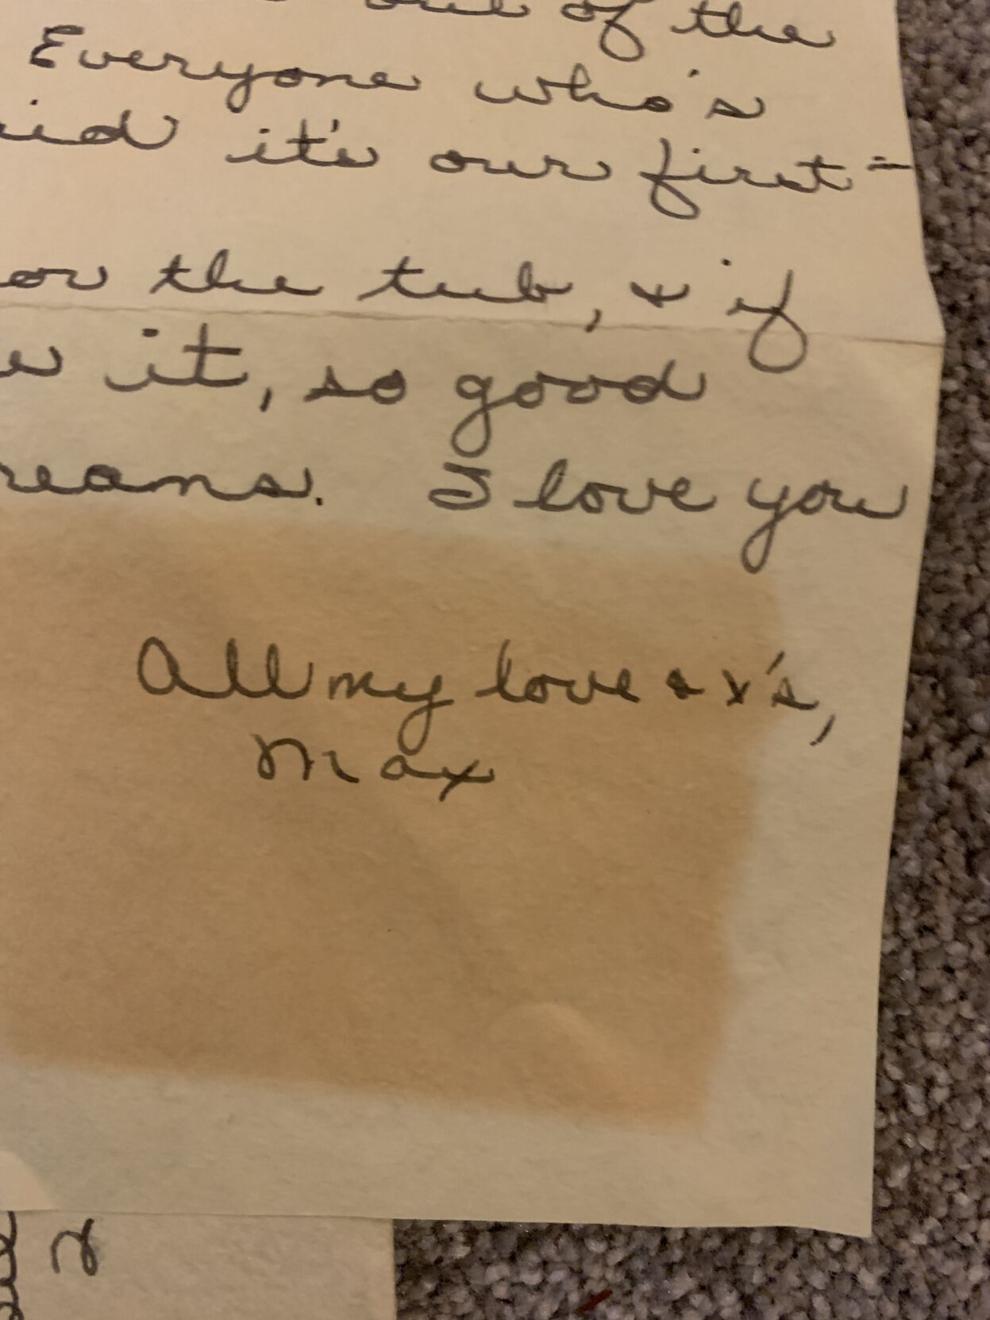 out of the
Everyone who's
it's our first-
the tub, & if
it, so good
I love you
All my love & x's,
Max